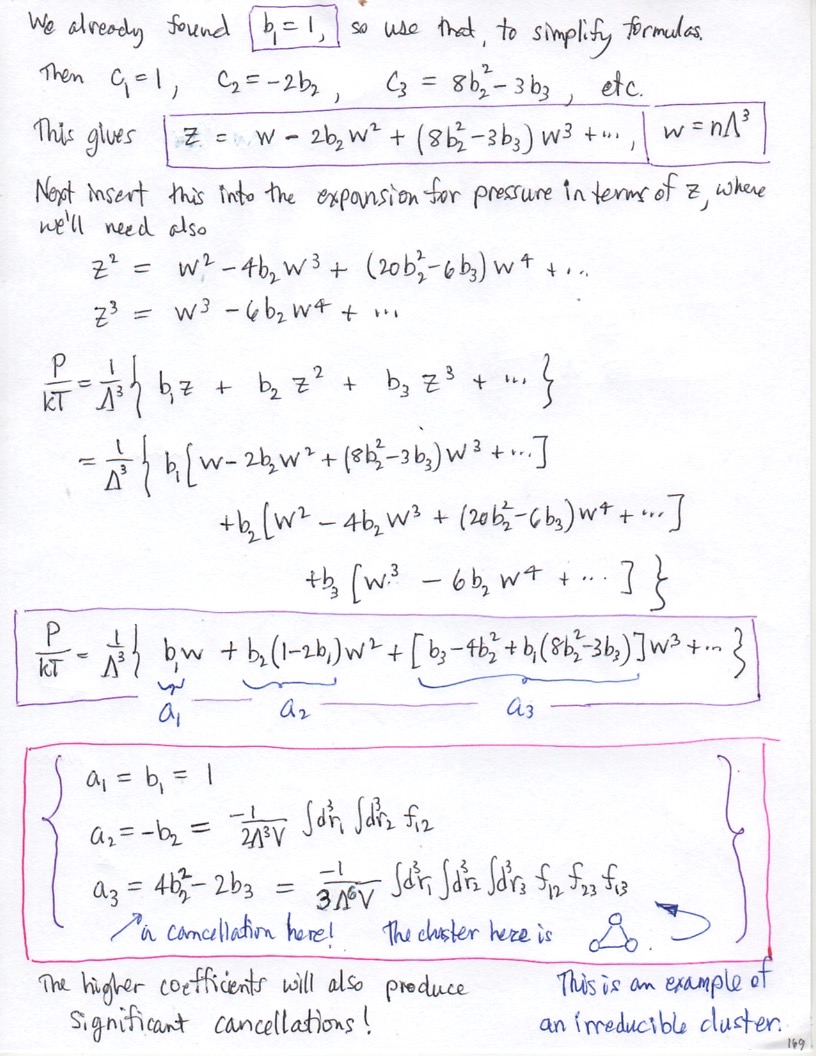 We already found b₁ = 1, so use that, to simplify formulas.
Then c₁ = 1, c₂ = -2b₂, c₃ = 8b₂² - 3b₃, etc.
This gives z = w - 2b₂w² + (8b₂² - 3b₃)w³ + ..., w = nΛ³
Next insert this into the expansion for pressure in terms of z, where
we'll need also
z² = w² - 4b₂w³ + (20b₂² - 6b₃)w⁴ + ...
z³ = w³ - 6b₂w⁴ + ...
P/kT = 1/Λ³ { b₁z + b₂z² + b₃z³ + ... }
= 1/Λ³ { b₁[w - 2b₂w² + (8b₂² - 3b₃)w³ + ...]
+b₂[w² - 4b₂w³ + (20b₂² - 6b₃)w⁴ + ...]
+b₃[w³ - 6b₂w⁴ + ...] }
P/kT = 1/Λ³ { b₁w + b₂(1-2b₁)w² + [b₃ - 4b₂² + b₁(8b₂² - 3b₃)]w³ + ... }
a₁ a₂ a₃
a₁ = b₁ = 1
a₂ = -b₂ = -1/2Λ³V ∫d³r₁ ∫d³r₂ f₁₂
a₃ = 4b₂² - 2b₃ = -1/3Λ⁶V ∫d³r₁ ∫d³r₂ ∫d³r₃ f₁₂ f₂₃ f₁₃
a cancellation here! The cluster here is .
The higher coefficients will also produce
significant cancellations!
This is an example of
an irreducible cluster.
169